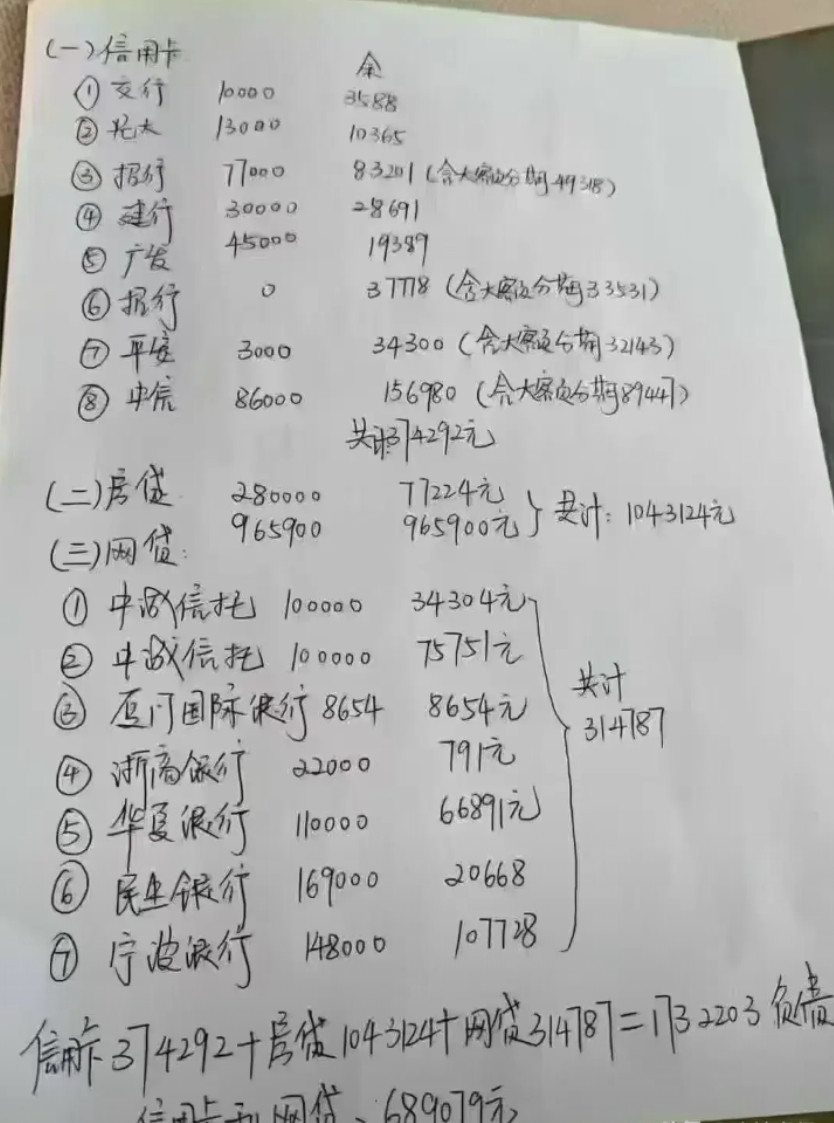 (一)信用卡 余
① 交行 10000 3588
② 光大 13000 10365
③ 招行 77000 83201(含大额分期49318)
④ 建行 30000 28691
⑤ 广发 45000 19389
⑥ 招行 0 37778(含大额分期33531)
⑦ 平安 3000 34300(含大额分期32143)
⑧ 中信 86000 156980(含大额分期89447)
共计374292元
(二)房贷 280000 77224元
965900 965900元 } 共计:1043124元
(三)网贷:
① 中诚信托 100000 34304元
② 中诚信托 100000 75751元
③ 厦门国际银行 8654 8654元
④ 浙商银行 22000 791元
⑤ 华夏银行 110000 66891元
⑥ 民生银行 169000 20668
⑦ 宁波银行 148000 107728
共计
314787
信用卡374292+房贷1043124+网贷314787=1732203 负债
信用卡和网贷、689079元